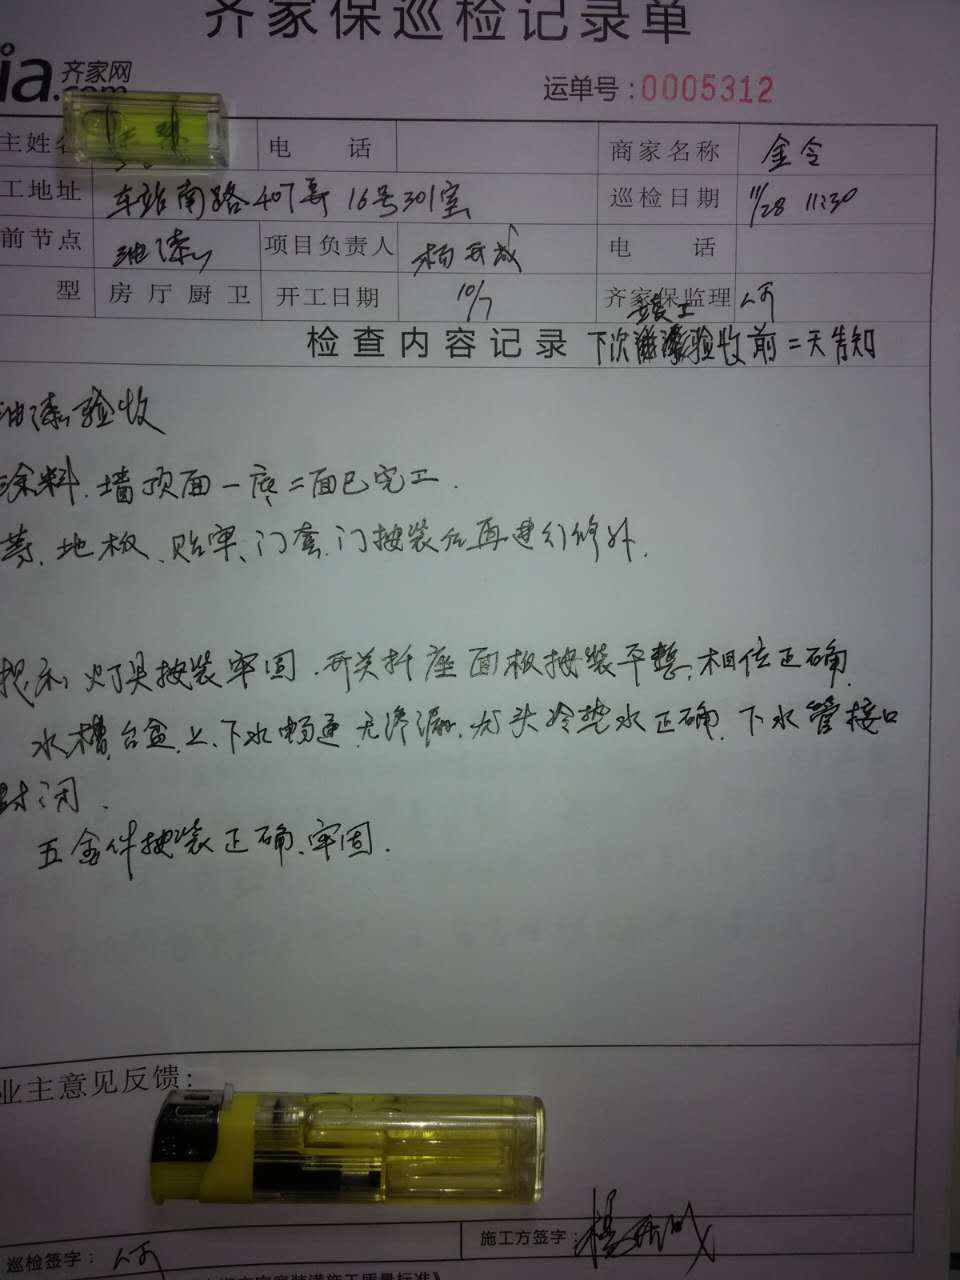 齐家保巡检记录单
ia.com 齐家网
运单号:0005312
主姓名 电 话 商家名称 金令
工地址 车站南路407弄16号301室 巡检日期 11/28 11:30
前节点 油漆 项目负责人 杨开成 电 话
型 房厅厨卫 开工日期 10/7 齐家保监理
竣工
检查内容记录 下次验收前二天告知
油漆验收
涂料.墙顶面一底二面已完工.
等、地板、贴砖、门套、门按装后再进行修补.
灯具按装牢固.开关插座面板按装平整,相位正确.
水槽,台盆.上、下水畅通.无渗漏.龙头冷热水正确.下水管接口
封闭.
五金件按装正确、牢固.
业主意见反馈:
巡检签字: 施工方签字: 杨开成